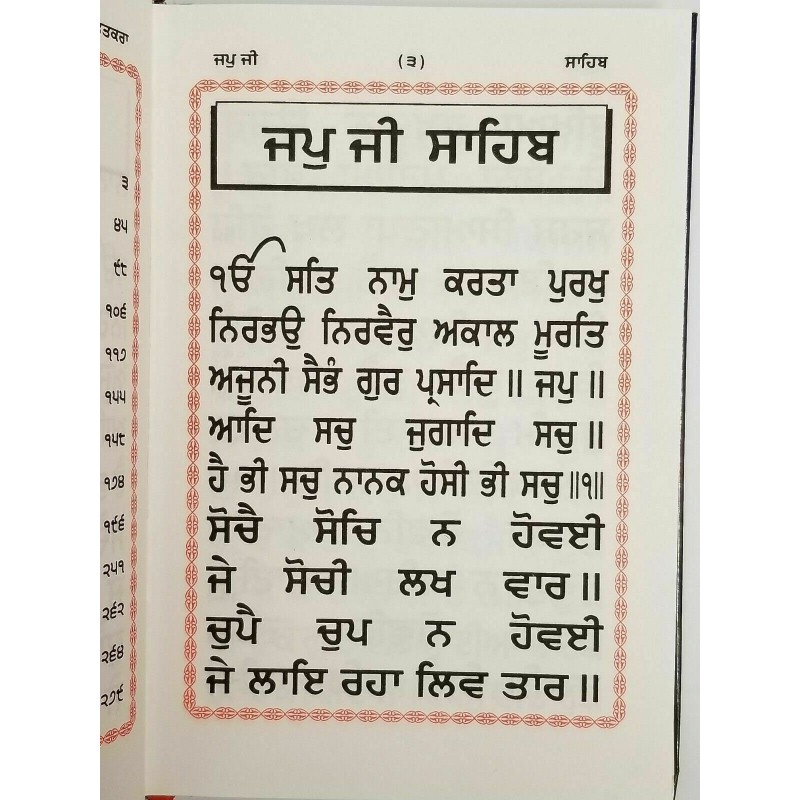 ਤਕਰਾ
੩
੪੫
੯੮
੧੦੬
੧੧੭
੧੫੫
੧੫੮
੧੭੪
੧੯੬
੨੫੧
੨੬੨
੨੬੪
੨੭੯
ਜਪੁ ਜੀ (੩) ਸਾਹਿਬ
ਜਪੁ ਜੀ ਸਾਹਿਬ
ੴ ਸਤਿ ਨਾਮੁ ਕਰਤਾ ਪੁਰਖੁ
ਨਿਰਭਉ ਨਿਰਵੈਰੁ ਅਕਾਲ ਮੂਰਤਿ
ਅਜੂਨੀ ਸੈਭੰ ਗੁਰ ਪ੍ਰਸਾਦਿ ॥ ਜਪੁ ॥
ਆਦਿ ਸਚੁ ਜੁਗਾਦਿ ਸਚੁ ॥
ਹੈ ਭੀ ਸਚੁ ਨਾਨਕ ਹੋਸੀ ਭੀ ਸਚੁ ॥੧॥
ਸੋਚੈ ਸੋਚਿ ਨ ਹੋਵਈ
ਜੇ ਸੋਚੀ ਲਖ ਵਾਰ ॥
ਚੁਪੈ ਚੁਪ ਨ ਹੋਵਈ
ਜੇ ਲਾਇ ਰਹਾ ਲਿਵ ਤਾਰ ॥